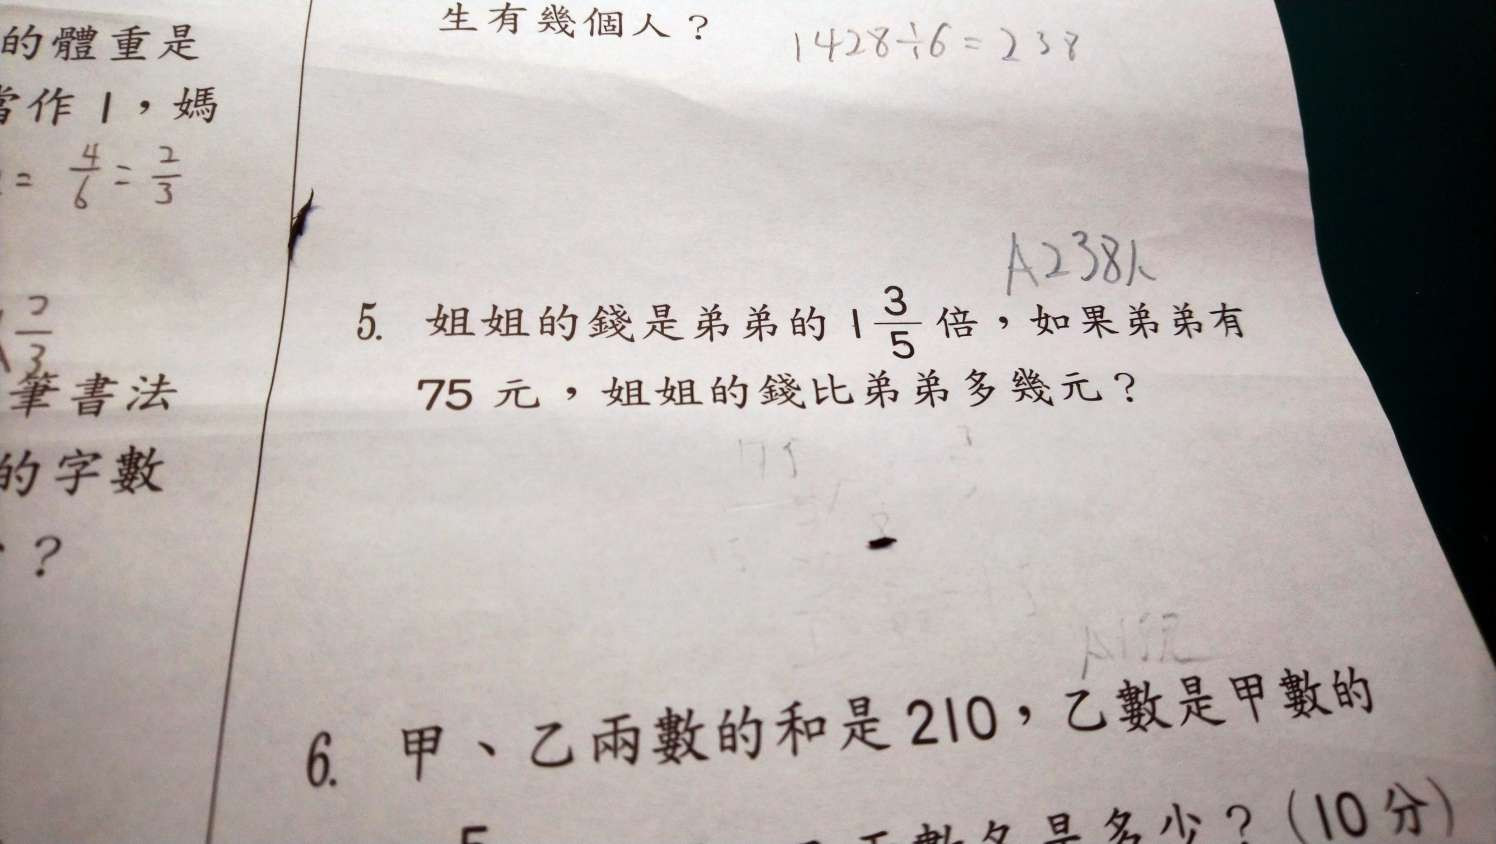 的體重是
當作1，媽
= 4/6 = 2/3
2/3
筆書法
的字數
？
生有幾個人？
1428÷6=238
A238人
5. 姐姐的錢是弟弟的 1 3/5 倍，如果弟弟有
75 元，姐姐的錢比弟弟多幾元？
6. 甲、乙兩數的和是210，乙數是甲數的
數各是多少？（10分）